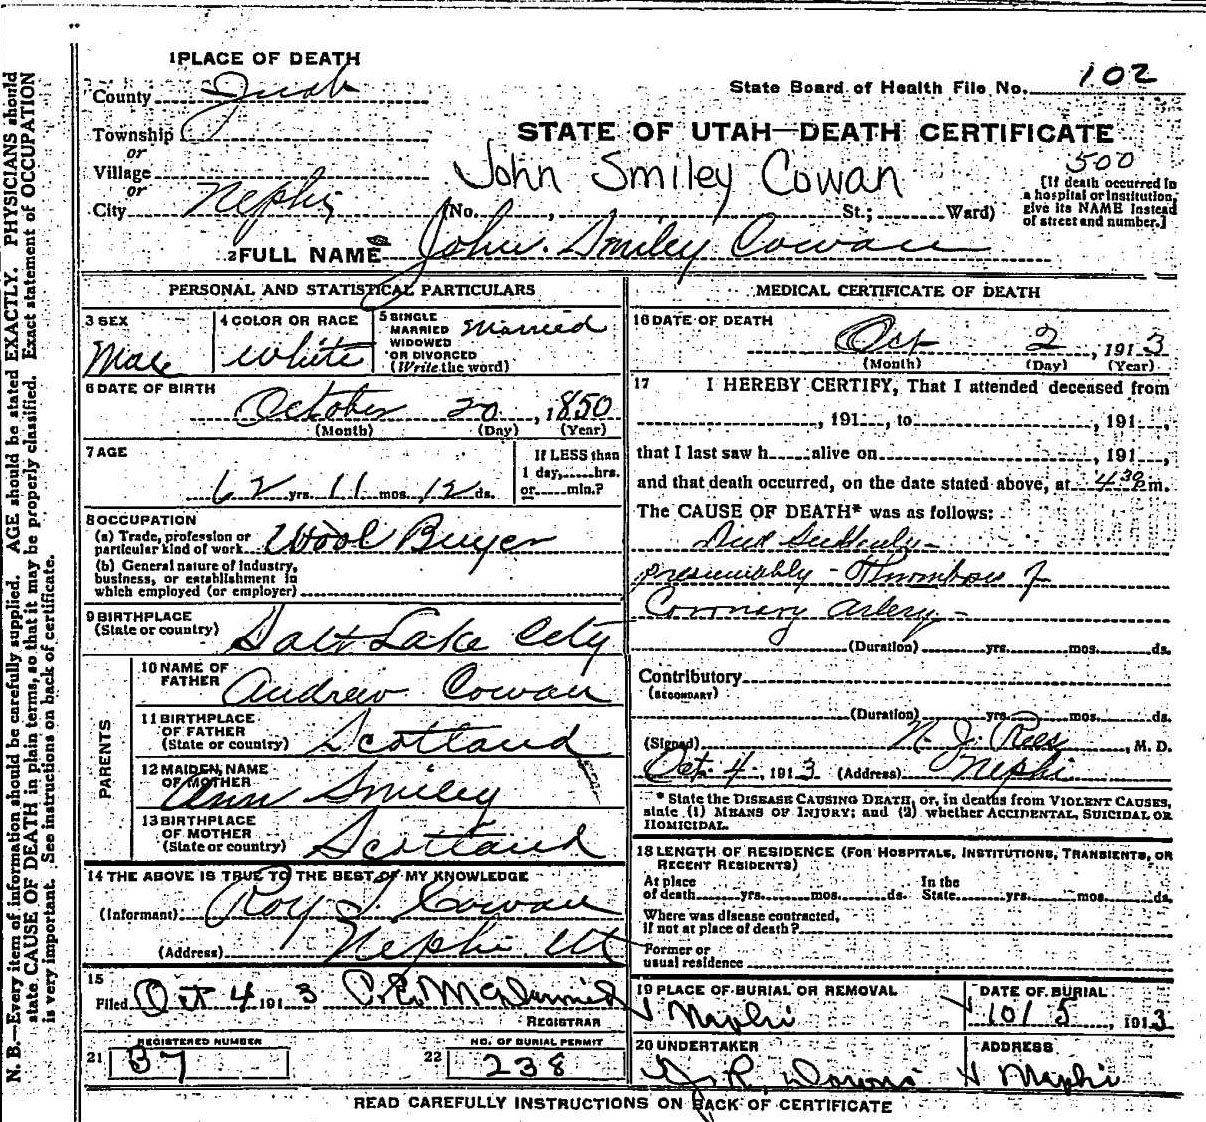 N. B.—Every item of information should be carefully supplied. AGE should be stated EXACTLY. PHYSICIANS should
state CAUSE OF DEATH in plain terms, so that it may be properly classified. Exact statement of OCCUPATION
is very important. See instructions on back of certificate.
1 PLACE OF DEATH
County Juab
State Board of Health File No. 102
Township
or
STATE OF UTAH—DEATH CERTIFICATE
Village
or
John Smiley Cowan
500
City Nephi
(No. , St.; Ward)
[If death occurred in
a hospital or institution,
give its NAME instead
of street and number.]
2 FULL NAME John Smiley Cowan
PERSONAL AND STATISTICAL PARTICULARS
3 SEX
Male
4 COLOR OR RACE
White
5 SINGLE
MARRIED
WIDOWED
OR DIVORCED
(Write the word)
Married
6 DATE OF BIRTH
October 20, 1850
(Month) (Day) (Year)
7 AGE
62 yrs. 11 mos. 12 ds.
If LESS than
1 day, hrs.
or min.?
8 OCCUPATION
(a) Trade, profession or
particular kind of work Wool Buyer
(b) General nature of industry,
business, or establishment in
which employed (or employer)
9 BIRTHPLACE
(State or country) Salt Lake City
PARENTS
10 NAME OF
FATHER Andrew Cowan
11 BIRTHPLACE
OF FATHER
(State or country) Scotland
12 MAIDEN NAME
OF MOTHER Ann Smiley
13 BIRTHPLACE
OF MOTHER
(State or country) Scotland
14 THE ABOVE IS TRUE TO THE BEST OF MY KNOWLEDGE
(Informant) Roy Cowan
(Address) Nephi Ut
15
Filed Oct 4 1913
REGISTRAR
REGISTERED NUMBER
21 37
NO. OF BURIAL PERMIT
22 238
MEDICAL CERTIFICATE OF DEATH
16 DATE OF DEATH
Oct 2, 1913
(Month) (Day) (Year)
17 I HEREBY CERTIFY, That I attended deceased from
, 191 , to , 191 ,
that I last saw h alive on , 191 ,
and that death occurred, on the date stated above, at 4 30 P m.
The CAUSE OF DEATH* was as follows:
Died Suddenly—
presumably - Thrombosis of
Coronary artery—
(Duration) yrs. mos. ds.
Contributory
(SECONDARY)
(Duration) yrs. mos. ds.
(Signed) Rees, M. D.
Oct 4, 1913 (Address) Nephi
* State the DISEASE CAUSING DEATH, or, in deaths from VIOLENT CAUSES,
state (1) MEANS OF INJURY; and (2) whether ACCIDENTAL, SUICIDAL OR
HOMICIDAL.
18 LENGTH OF RESIDENCE (FOR HOSPITALS, INSTITUTIONS, TRANSIENTS, OR
RECENT RESIDENTS)
At place
of death yrs. mos. ds.
In the
State yrs. mos. ds.
Where was disease contracted,
if not at place of death?
Former or
usual residence
19 PLACE OF BURIAL OR REMOVAL
Nephi
DATE OF BURIAL
10/5, 1913
20 UNDERTAKER
ADDRESS
Nephi
READ CAREFULLY INSTRUCTIONS ON BACK OF CERTIFICATE